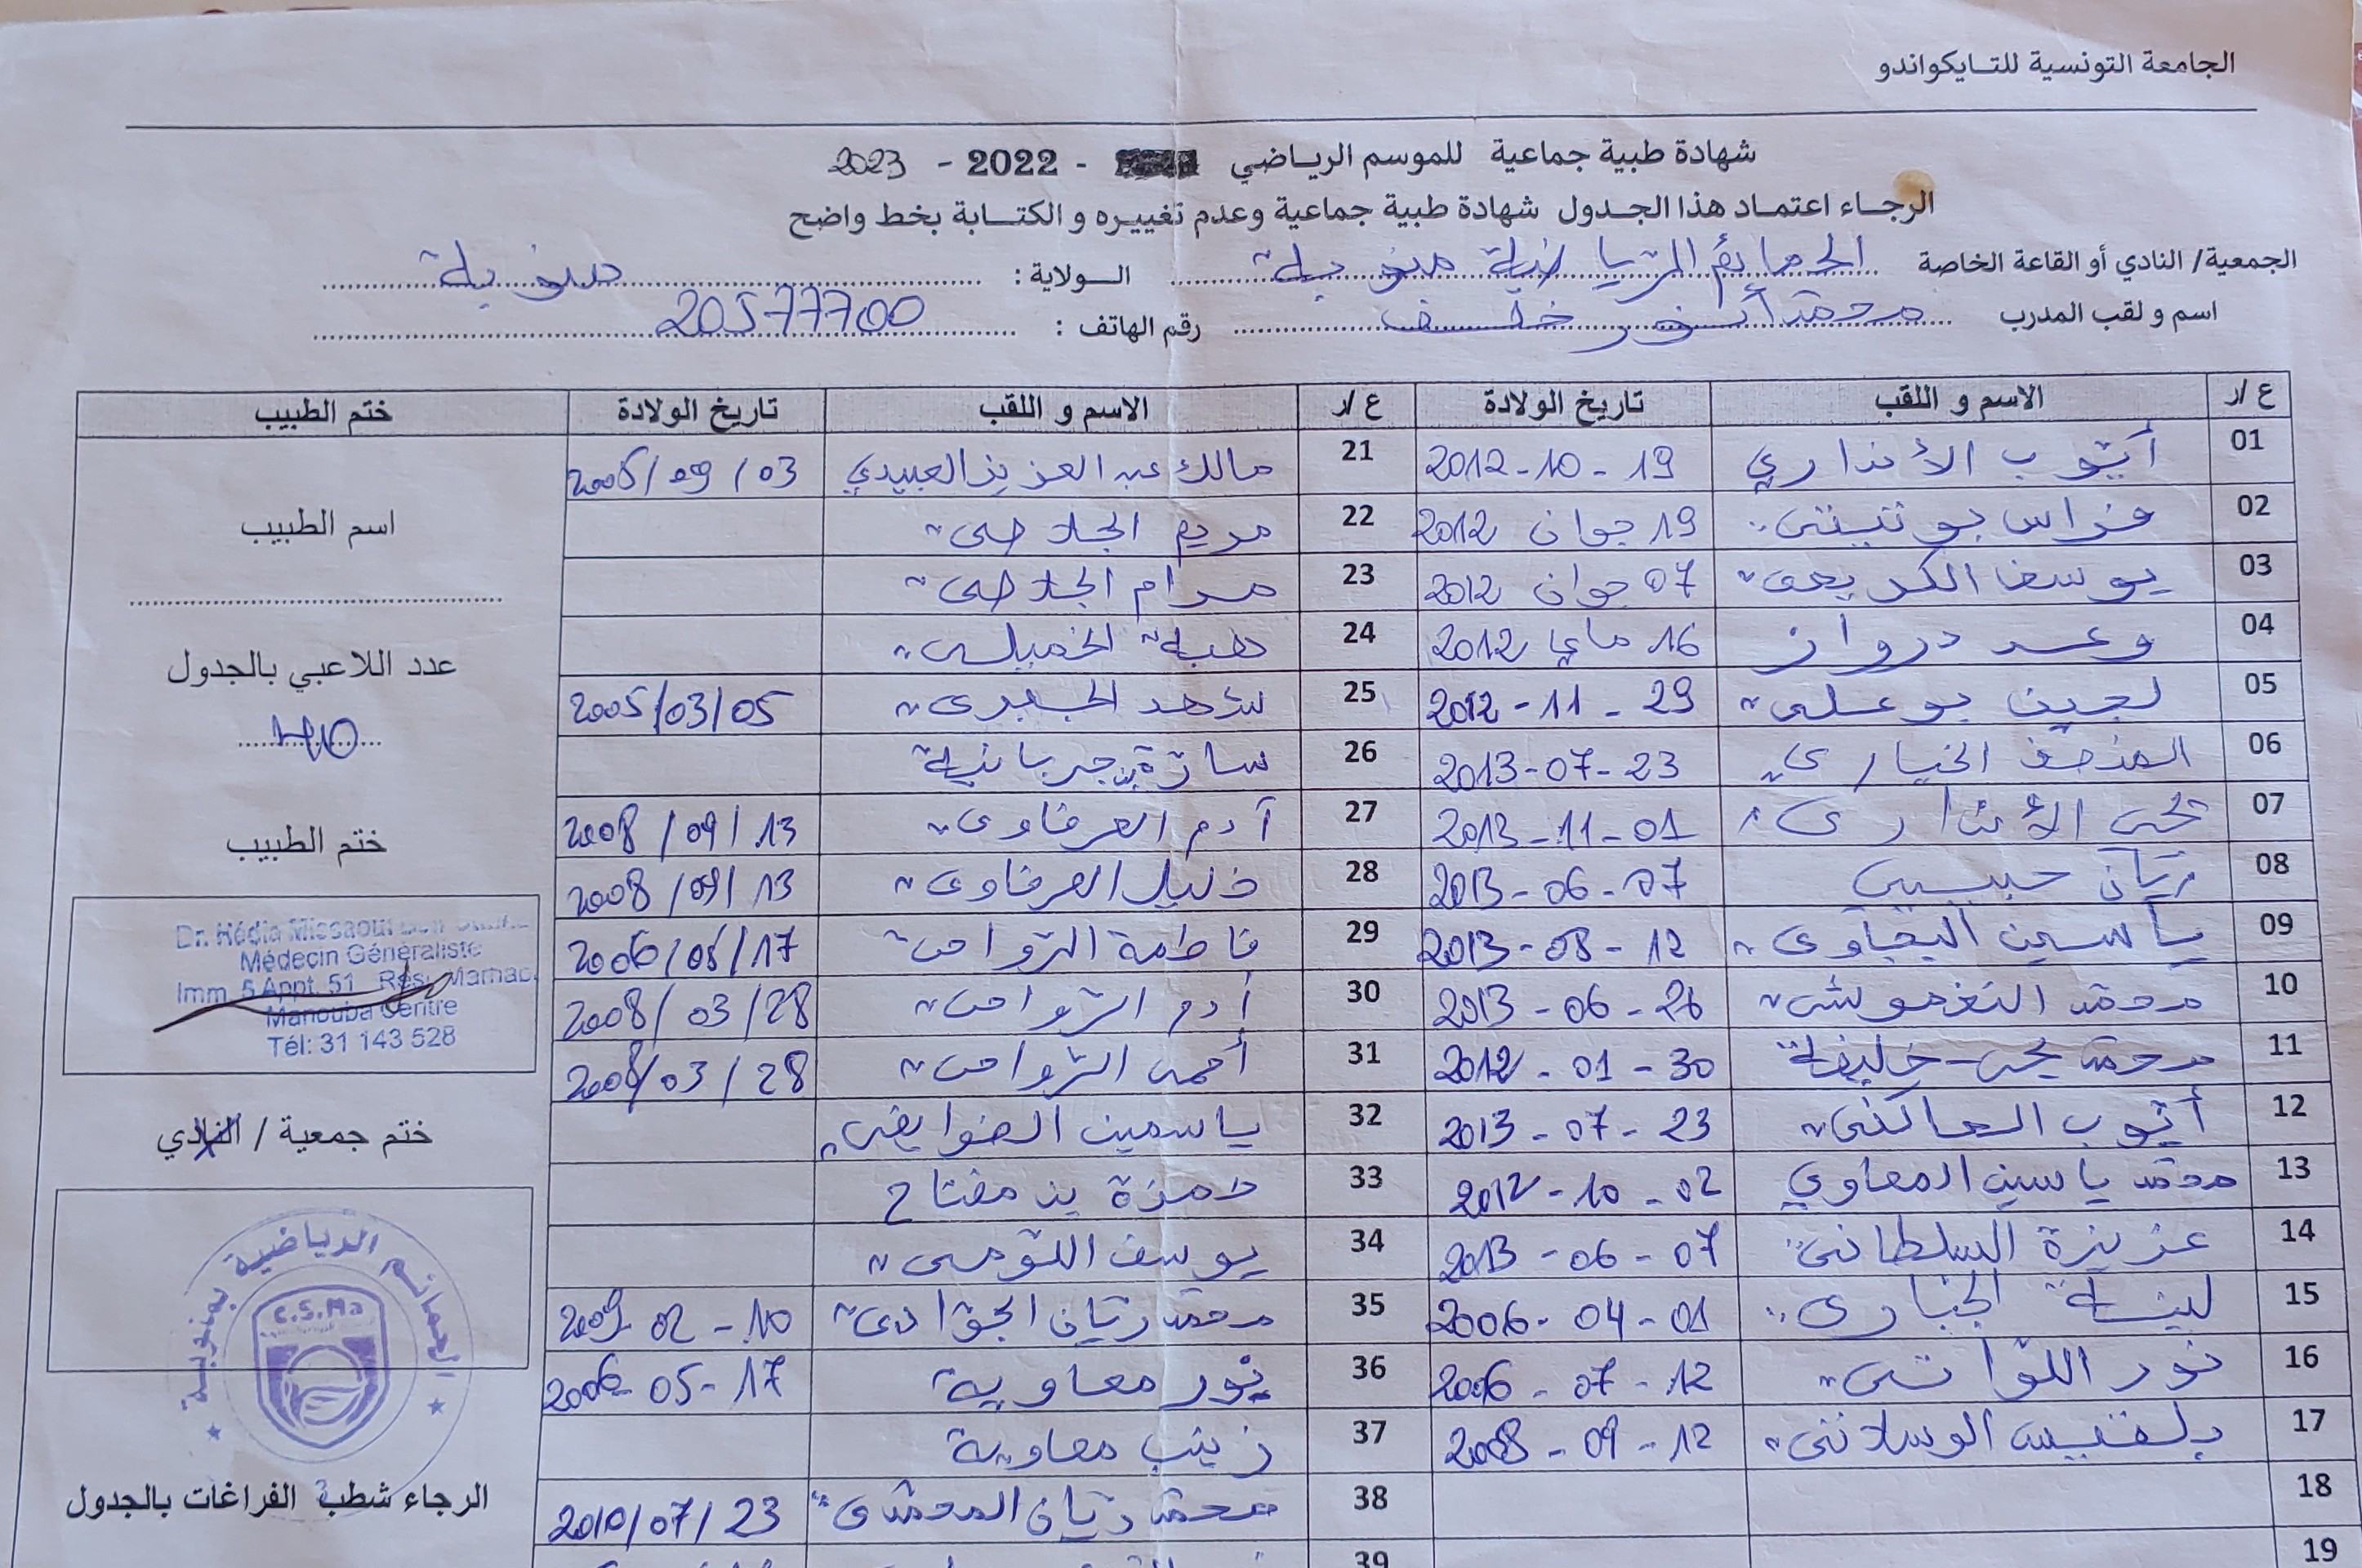 الجامعة التونسية للتـايكواندو
شهادة طبية جماعية للموسم الرياضي - 2022 - 2023
الرجـاء اعتمـاد هذا الجـدول شهادة طبية جماعية وعدم تغييـره و الكتـابة بخط واضح
الجمعية/ النادي أو القاعة الخاصة الحمائم الرياضية منوبة الـولاية : منوبة
اسم و لقب المدرب محمد أنور خلف رقم الهاتف : 20577700
ع/ر الاسم و اللقب تاريخ الولادة ع/ر الاسم و اللقب تاريخ الولادة ختم الطبيب
01 أيوب الأنداري 19 - 10 - 2012 21 مالك عبد العزيز العبيدي 03 / 09 /
02 فراس بو 19 جوان 2012 22 مريم الجلاصي
03 يوسف 07 جوان 2012 23 مرام الجلاصي
04 وعد درواز 16 ماي 2012 24 هبة الخميلي
05 لجين بوعلي 29 - 11 - 2012 25 شهد 05/03/2005
06 المنصف الخياري 23 - 07 - 2013 26 سارة جربانية
07 الأنداري 01 - 11 - 2013 27 آدم العرفاوي 13 / 09 / 2008
08 ريان حبيبي 07 - 06 - 2013 28 خليل العرفاوي 13 / 09 / 2008
09 ياسمين 12 - 08 - 2013 29 فاطمة 17 / 05 / 2006
10 محمد 26 - 06 - 2013 30 آدم 28 / 03 / 2008
11 محمد يحي خليفة 30 - 01 - 2012 31 أحمد 28 / 03 / 2008
12 أيوب 23 - 07 - 2013 32 ياسمين الضوايفي
13 محمد ياسين المعاوي 02 - 10 - 2012 33 حمزة بن مفتاح
14 عزيزة السلطاني 07 - 06 - 2013 34 يوسف
15 لينة 01 - 04 - 2006 35 محمد ريان الجوادي 10 - 02 2009
16 نور اللواتي 12 - 07 - 2006 36 نور معاوية 17 - 05 - 2006
17 بلقيس الوسلاتي 12 - 09 - 2008 37 زينب معاوية
18 38 محمد ريان المحمدي 23 / 07 / 2010
19 39
اسم الطبيب
عدد اللاعبي بالجدول
40
ختم الطبيب
Dr. Hédia Missaoui Ben
Médecin Généraliste
Imm. 5 Appt. 51 Rés.
Manouba Centre
Tél: 31 143 528
ختم جمعية / النادي
الحمائم الرياضية بمنوبة
C.S.Ma
الرجاء شطب الفراغات بالجدول